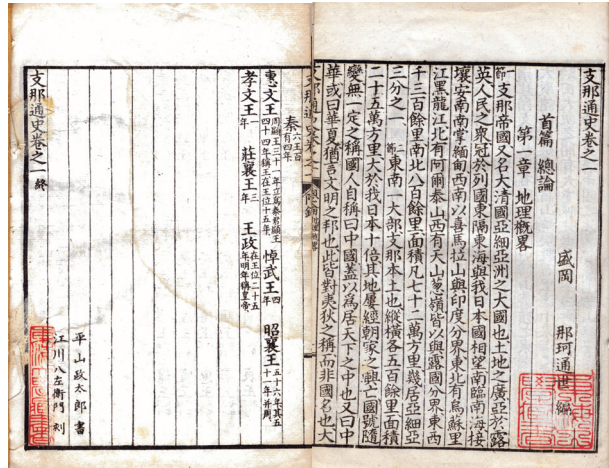 支那通史卷之一
盛岡 那珂通世 編
首篇 總論
第一章 地理概略
一節 支那帝國又名大清國亞細亞洲之大國也土地之廣亞於露
英人民之衆冠於列國東隔東海與我日本國相望南臨南海接
壤安南南掌緬甸西南以喜馬拉山與印度分界東北有烏蘇里
江黑龍江北有阿爾泰山西有天山葱嶺皆以與露國分界東西
千三百餘里南北八百餘里面積凡七十二萬方里幾居亞細亞
三分之一 二節 東南一大部支那本土也縱橫各五百餘里面積
二十五萬方里大於我日本十倍其地屢經朝家之興亡國號隨
變無一定之稱國人自稱曰中國蓋以為居天下之中也又曰中
華或曰華夏猶言文明之邦也此皆對夷狄之稱而非國名也大
支那通史卷之一
秦 六王百有四年
惠文王 周顯王三十一年立爲秦君顯王四十四年稱王在王位十五年 悼武王 四年 昭襄王 五十六年其五十一年并周
孝文王 一年 莊襄王 三年 王政 在王位二十五年明年稱皇帝
支那通史卷之一 終
平山政太郎 書
江川八左衛門 刻